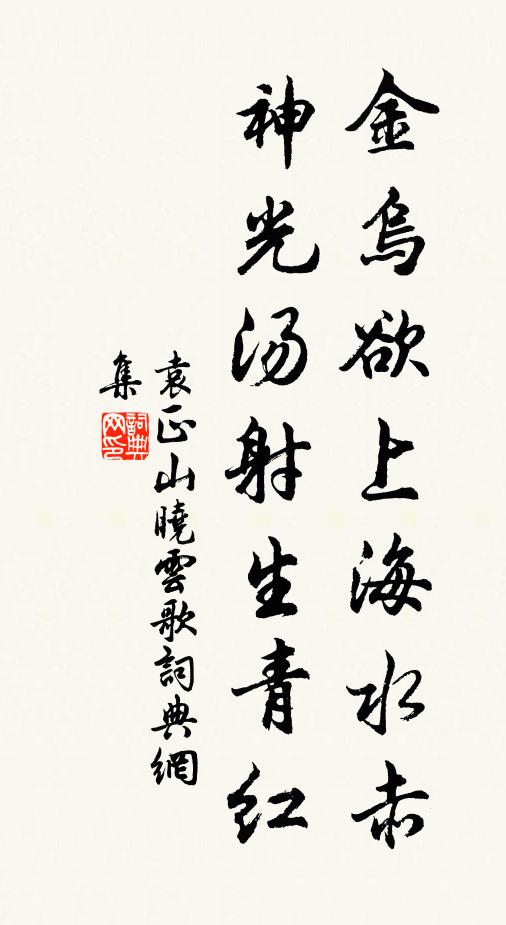 金烏欲上海水赤
神光汤射生青红
袁正山曉雲歌詞典網
集
詞典網印